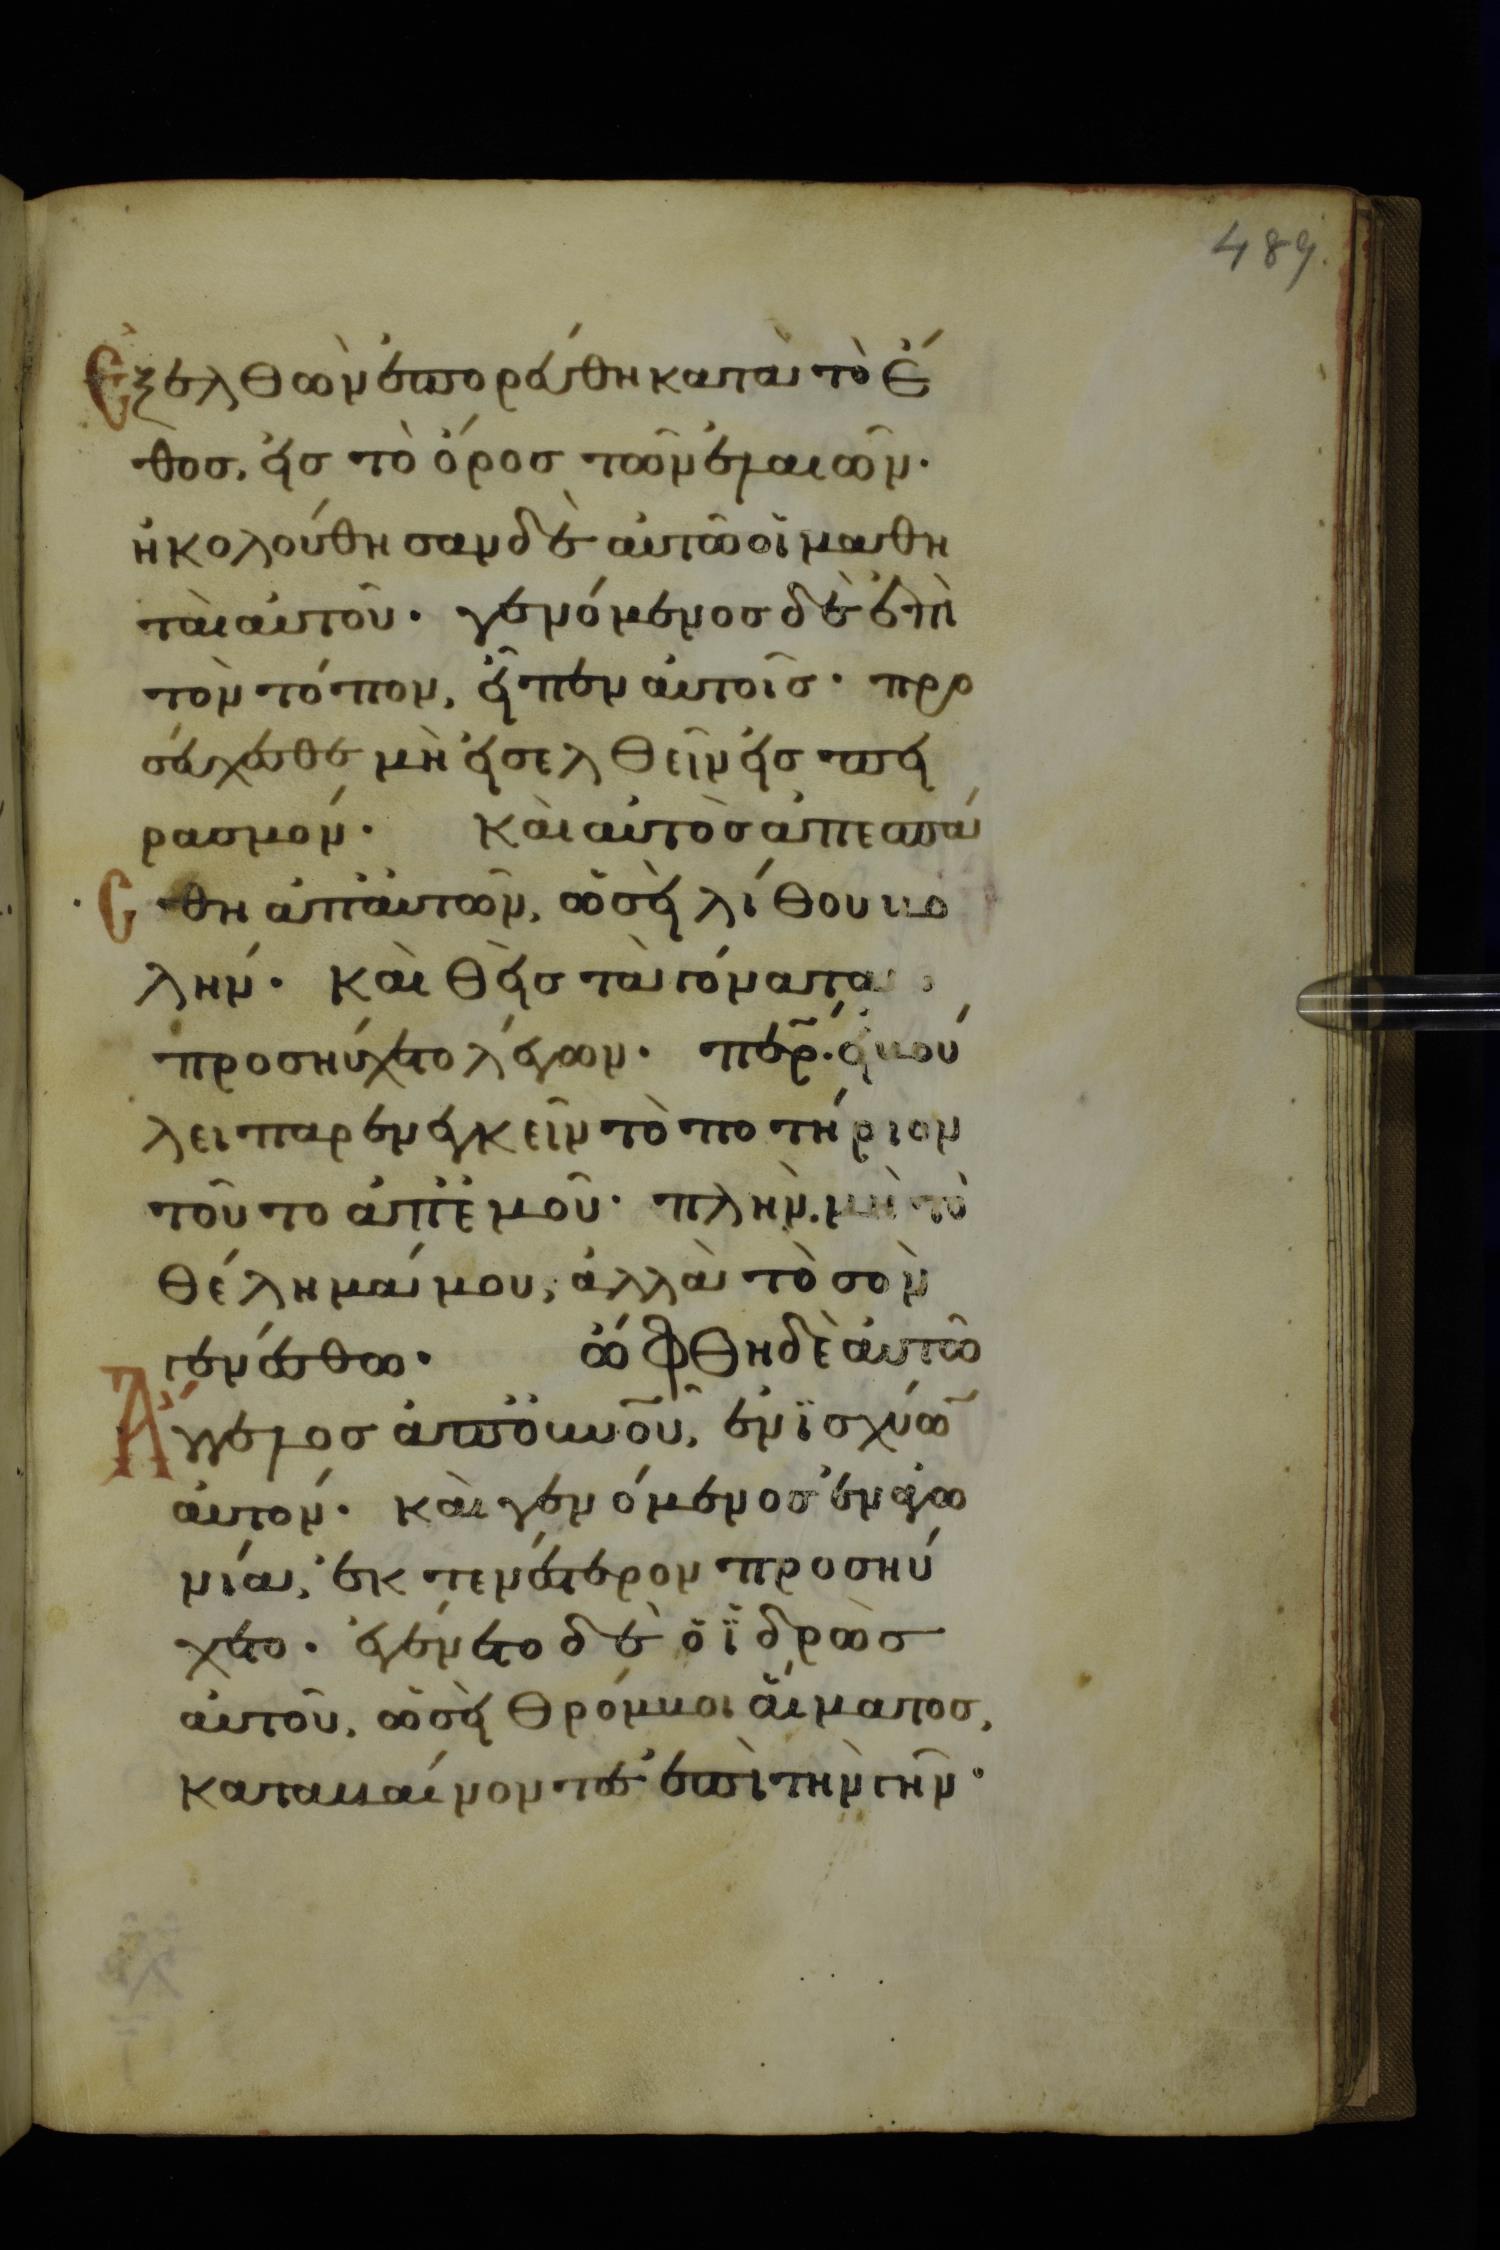 489.
Ἐξελθὼν ἐπορεύθη κατὰ τὸ ἔ
θοσ, εἰσ τὸ ὄροσ τῶν ἐλαιῶν·
ἠκολούθησαν δὲ αὐτῶ οἱ μαθη
ταὶ αὐτοῦ· γενόμενοσ δὲ ἐπὶ
τὸν τόπον, εἶπεν αὐτοῖσ· προ
σεύχεσθε μὴ εἰσελθεῖν εἰσ πει
ρασμόν· Καὶ αὐτὸσ ἀπεσπά
σθη ἀπ' αὐτῶν, ὡσεὶ λίθου βο
λήν· Καὶ θεὶσ τὰ γόνατα
προσηύχετο λέγων· περ· εἰ βού
λει παρενεγκεῖν τὸ ποτήριον
τοῦτο ἀπ' ἐμοῦ· πλὴν μὴ τὸ
θέλημά μου, ἀλλὰ τὸ σὸν
γενέσθω· ὤφθη δὲ αὐτῶ
Ἄγγελοσ ἀπὸ ουνοῦ, ἐνϊσχύω
αὐτόν· καὶ γενόμενοσ ἐν ἀγω
νία, ἐκτενέστερον προσηύ
χετο· ἐγένετο δὲ ὁ ἱδρὼσ
αὐτοῦ, ὡσεὶ θρόμβοι αἵματοσ,
καταβαίνοντεσ ἐπὶ τὴν γῆν·